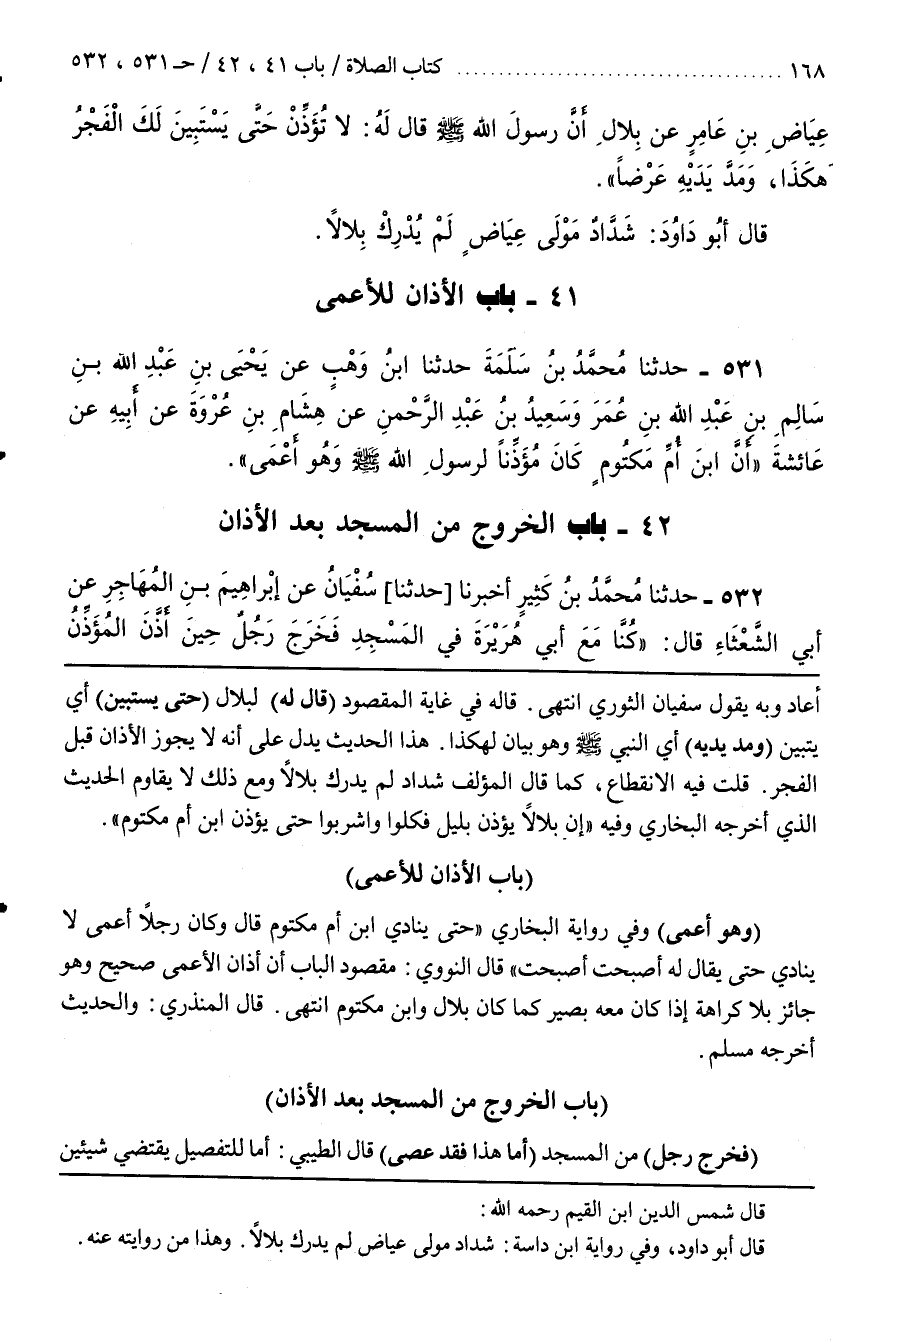 ١٦٨ ........................ كتاب الصلاة / باب ٤١ ، ٤٢ / حـ ٥٣١ ، ٥٣٢
عِيَاضِ بنِ عَامِرٍ عن بِلالِ أَنَّ رسولَ الله ﷺ قال لَهُ: لا تُؤَذِّنْ حَتَّى يَسْتَبِينَ لَكَ الْفَجْرُ
هكَذَا، وَمَدَّ يَدَيْهِ عَرْضاً».
قال أبُو دَاوُدَ: شَدَّادٌ مَوْلَى عِيَاضٍ لَمْ يُدْرِكْ بِلالاً.
٤١ ـ باب الأذان للأعمى
٥٣١ ـ حدثنا مُحمَّدُ بنُ سَلَمَةَ حدثنا ابنُ وَهْبٍ عن يَحْيَى بنِ عَبْدِ الله بـنِ
سَالِمِ بنِ عَبْدِ الله بنِ عُمَرَ وَسَعِيدُ بنُ عَبْدِ الرَّحْمنِ عن هِشَامِ بنِ عُرْوَةَ عن أَبِيهِ عن
عَائشةَ «أنَّ ابنَ أُمِّ مَكتُومٍ كَانَ مُؤَذِّناً لرسولِ الله ﷺ وَهُو أَعْمَى».
٤٢ ـ باب الخروج من المسجد بعد الأذان
٥٣٢ ـ حدثنا مُحمَّدُ بنُ كَثِيرٍ أخبرنا [حدثنا] سُفْيَانُ عن إبْراهِيمَ بـنِ المُهَاجِرِ عن
أبي الشَّعْثَاءِ قال: «كُنَّا مَعَ أبي هُرَيْرَةَ في المَسْجِدِ فَخَرَجَ رَجُلٌ حِينَ أَذَّنَ المُؤَذِّنُ
أعاد وبه يقول سفيان الثوري انتهى. قاله في غاية المقصود (قال له) لبلال (حتى يستبين) أي
يتبين (ومد يديه) أي النبي ﷺ وهو بيان لهكذا. هذا الحديث يدل على أنه لا يجوز الأذان قبل
الفجر. قلت فيه الانقطاع، كما قال المؤلف شداد لم يدرك بلالاً ومع ذلك لا يقاوم الحديث
الذي أخرجه البخاري وفيه «إن بلالاً يؤذن بليل فكلوا واشربوا حتى يؤذن ابن أم مكتوم».
(باب الأذان للأعمى)
(وهو أعمى) وفي رواية البخاري «حتى ينادي ابن أم مكتوم قال وكان رجلاً أعمى لا
ينادي حتى يقال له أصبحت أصبحت» قال النووي: مقصود الباب أن أذان الأعمى صحيح وهو
جائز بلا كراهة إذا كان معه بصير كما كان بلال وابن مكتوم انتهى. قال المنذري: والحديث
أخرجه مسلم.
(باب الخروج من المسجد بعد الأذان)
(فخرج رجل) من المسجد (أما هذا فقد عصى) قال الطيبي: أما للتفصيل يقتضي شيئين
قال شمس الدين ابن القيم رحمه الله:
قال أبو داود، وفي رواية ابن داسة: شداد مولى عياض لم يدرك بلالاً. وهذا من روايته عنه.